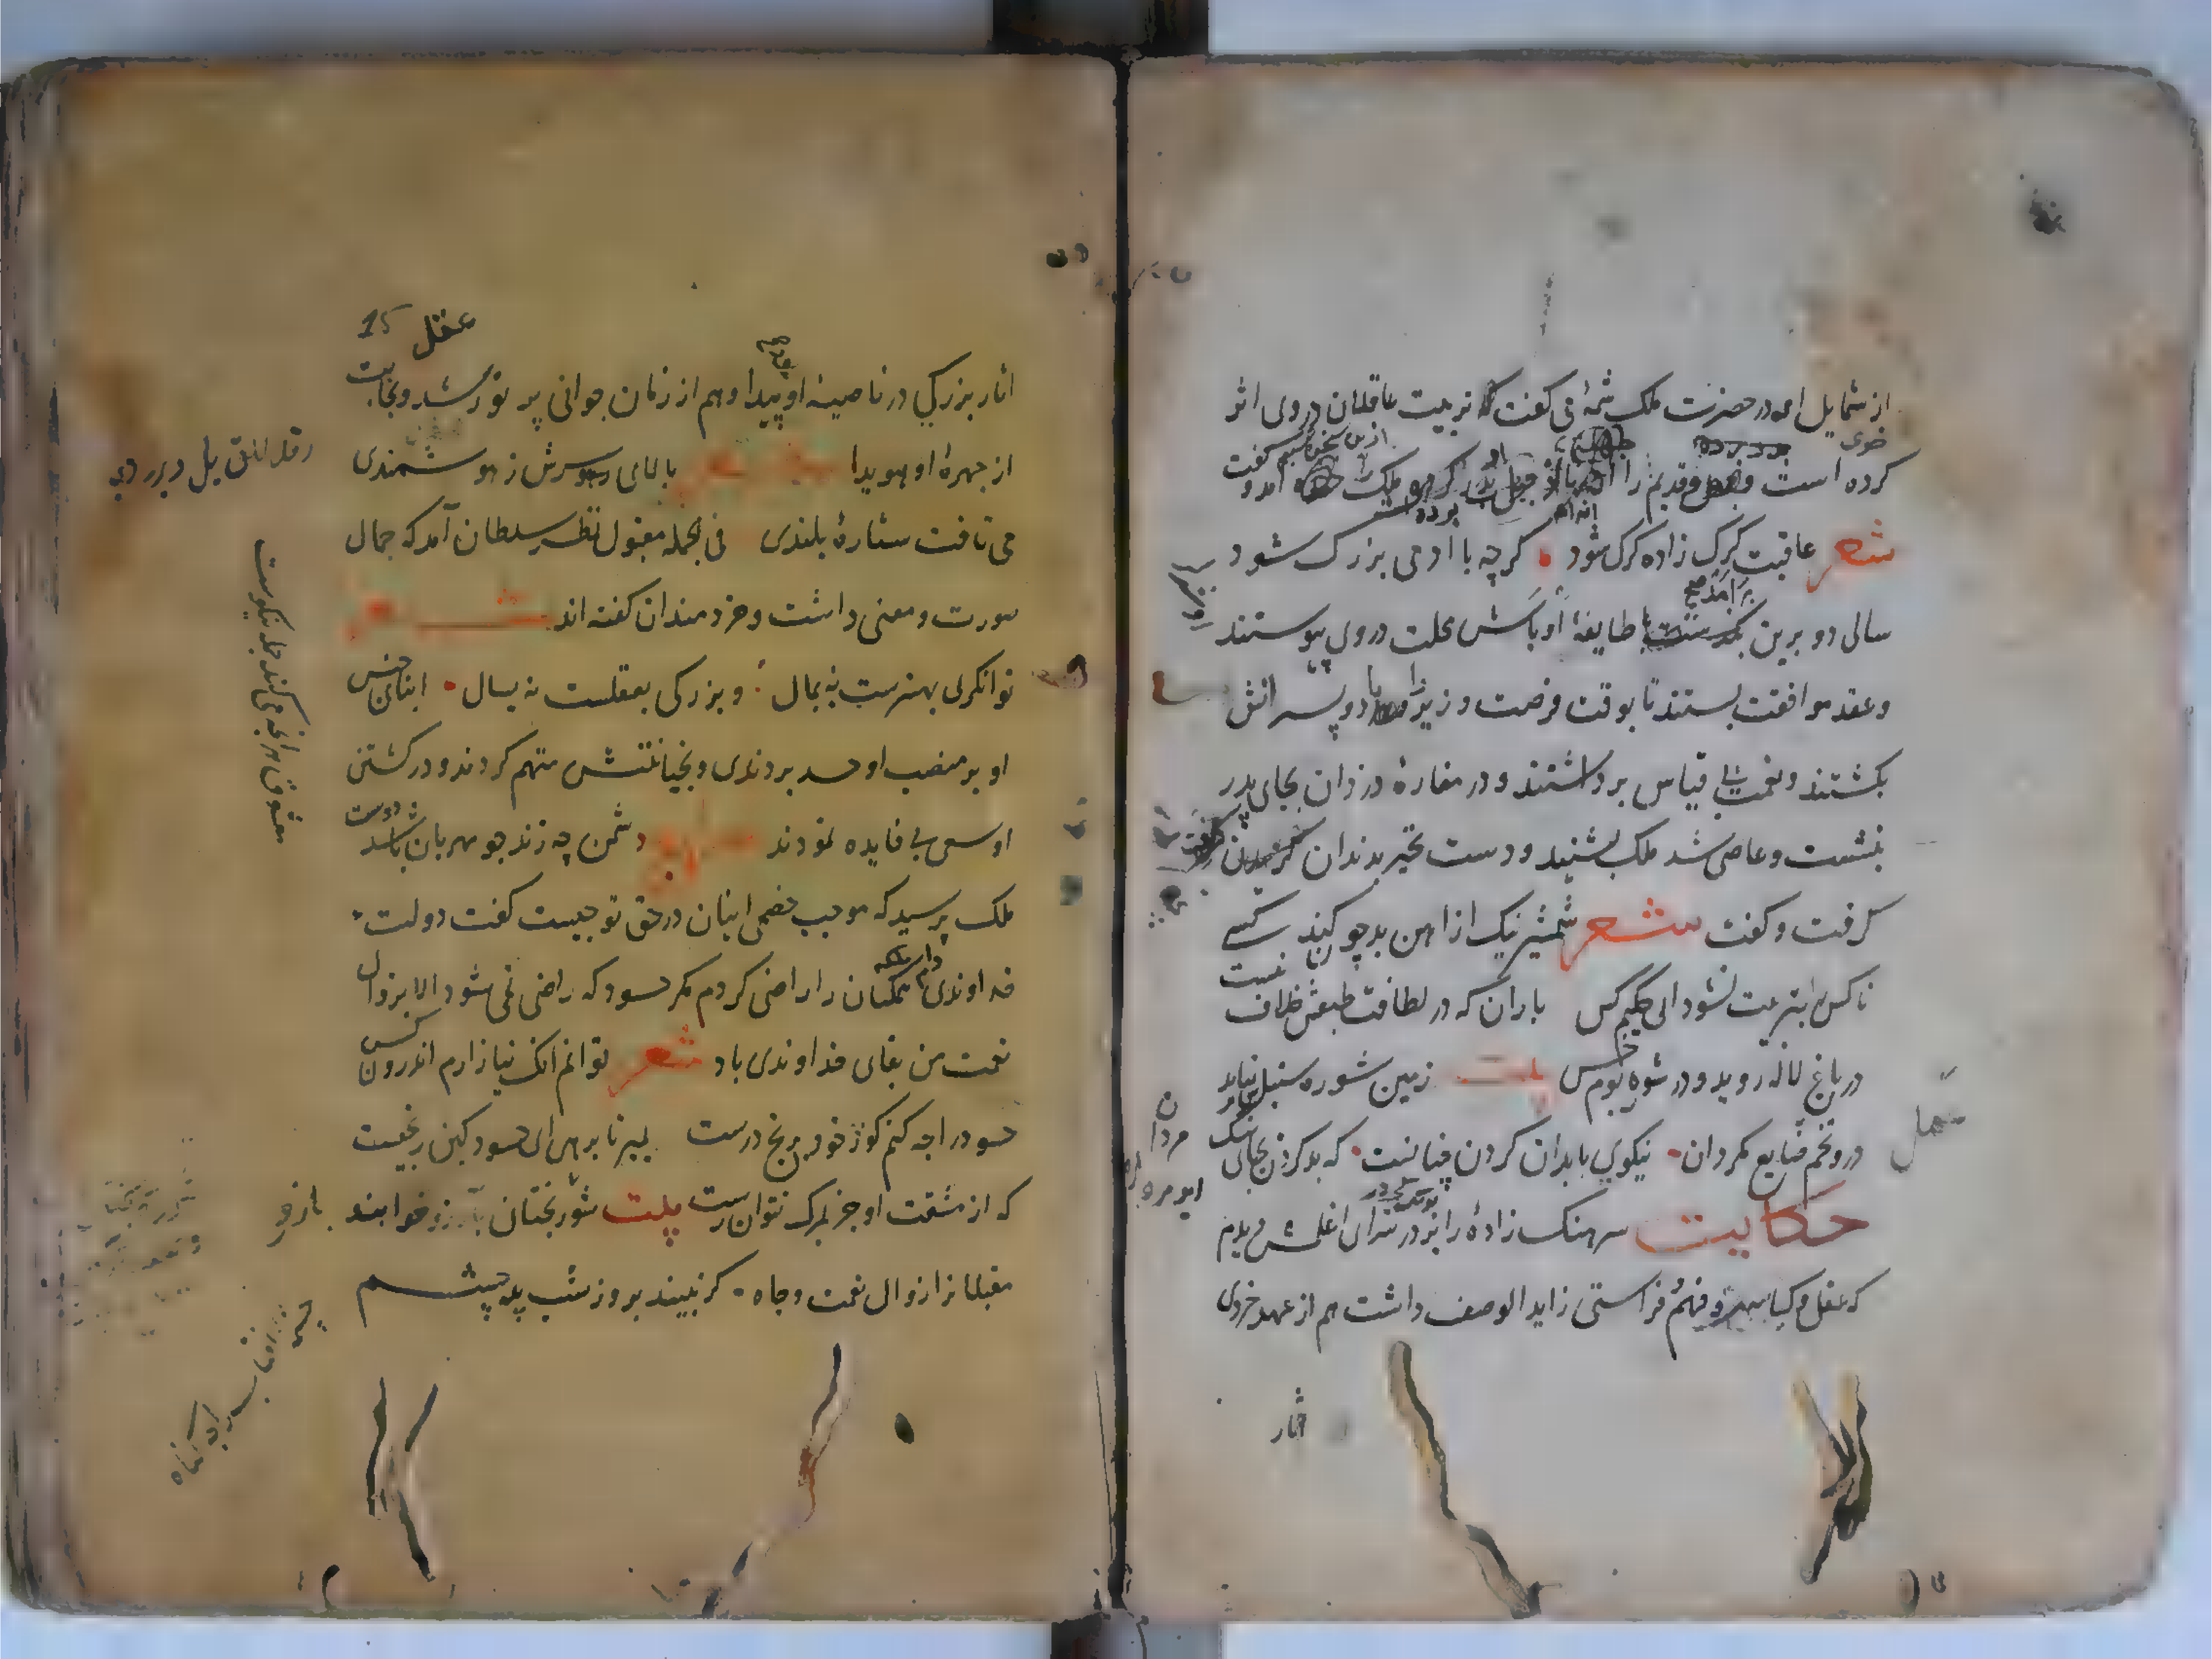 از شمایل او در حضرت ملک شمهٔ می گفت که تربیت عاقلان در وی اثر
خوی
کرده است و قدیم را ملک را از این سخن تبسم آمد و گفت
شعر عاقبت گرگ زاده گرگ شود گرچه با ادمی بزرگ شود
سالی دو برین برآمد طایفهٔ اوباش محلت در وی پیوستند
وعقد موافقت بستند تا بوقت فرصت وزیر را با دو پسرانش
بکشتند و نعمت بی قیاس برداشتند و در مغارهٔ دزدان بجای پدر
بنشست و عاصی شد ملک بشنید و دست تحیر بدندان
گرفت و گفت شعر شمشیر نیک از اهن بد چو کند کسی
ناکس بتربیت نشود ای حکیم کس باران که در لطافت طبعش خلاف نیست
در باغ لاله روید و در شوره بوم خس بیت زمین شوره سنبل نیاید
درو تخم ضایع مگردان نیکویی با بدان کردن چنانست که بد کردن بجای نیک
مردان
حکایت سرهنک زادهٔ را بر در سرای اغلمش دیدم
که عقل و کیاست و فهم و فراستی زاید الوصف داشت هم از عهد خردی
اثار
15
عقل
اثار بزرگی در ناصیهٔ او پیدا و هم از زمان جوانی پر تو رشد و نجابت
از چهرهٔ او هویدا شعر بالای سرش ز هوشمندی
می تافت ستارهٔ بلندی فی الجمله مقبول نظر سلطان آمد که جمال
صورت و معنی داشت و خردمندان گفته اند شعر
توانگری بهنرست نه بمال و بزرگی بعقلست نه بسال ابنای جنس
او بر منصب او حسد بردندی و بخیانتش متهم کردند و در کشتن
او سعی بی فایده نمودند دشمن چه زند چو مهربان باشد دوست
ملک پرسید که موجب خصمی اینان در حق تو چیست گفت دولت
خداوندی همکنان را راضی کردم مگر حسود که راضی نمی شود الا بزوال
نعمت من بقای خداوندی باد شعر توانم انک نیازارم اندرون کسی
حسود را چه کنم کو ز خود برنج درست بمیر تا برهی ای حسود کین رنجیست
که از مشقت او جز بمرگ نتوان رست بیت شوربختان بآرزو خواهند
مقبلانرا زوال نعمت و جاه گر نبیند بروز شب پره چشم
چشمهٔ آفتاب را چه گناه